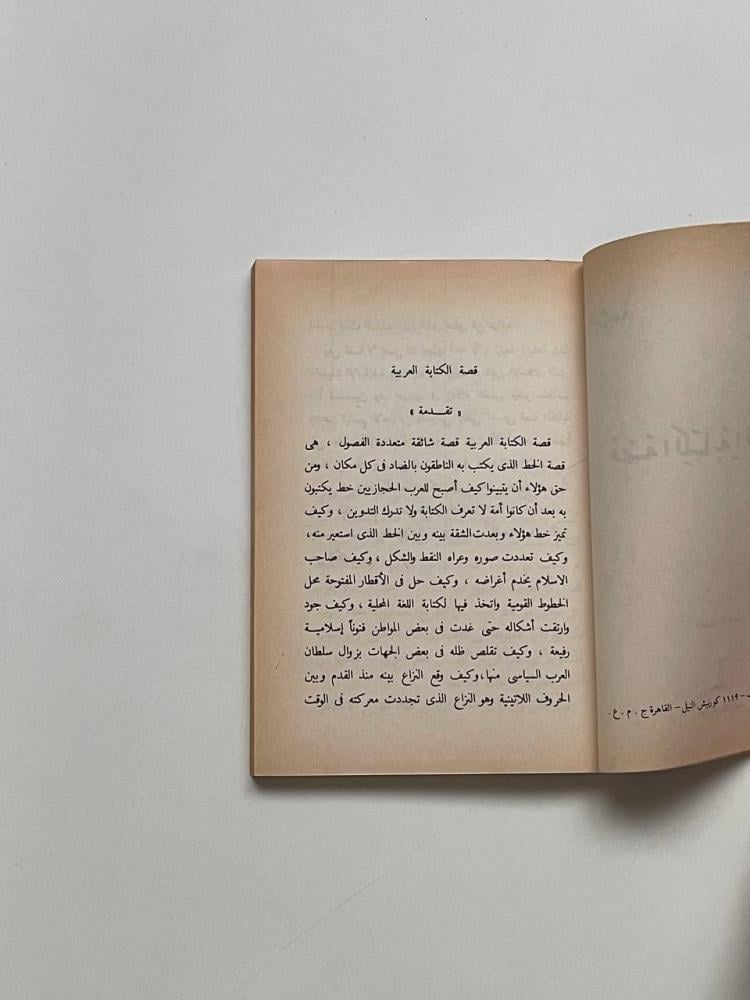 قصة الكتابة العربية
« تقـــدمة »
قصة الكتابة العربية قصة شائقة متعددة الفصول ، هى
قصة الخط الذى يكتب به الناطقون بالضاد فى كل مكان ، ومن
حق هؤلاء أن يتبينوا كيف أصبح للعرب الحجازيين خط يكتبون
به بعد أن كانوا أمة لا تعرف الكتابة ولا تدرك التدوين ، وكيف
تميز خط هؤلاء وبعدت الشقة بينه وبين الخط الذى استعير منه،
وكيف تعددت صوره وعراه النقط والشكل ، وكيف صاحب
الاسلام يخدم أغراضه ، وكيف حل فى الأقطار المفتوحة محل
الخطوط القومية واتخذ فيها لكتابة اللغة المحلية ، وكيف جود
وارتقت أشكاله حتى غدت فى بعض المواطن فنوناً إسلاميـــة
رفيعة ، وكيف تقلص ظله فى بعض الجهات بزوال سلطان
العرب السياسى منها،وكيف وقع النزاع بينه منذ القدم وبين
الحروف اللاتينية وهو النزاع الذى تجددت معركته فى الوقت
١١١٩ كورنيش النيل – القاهرة ج . م . ع .